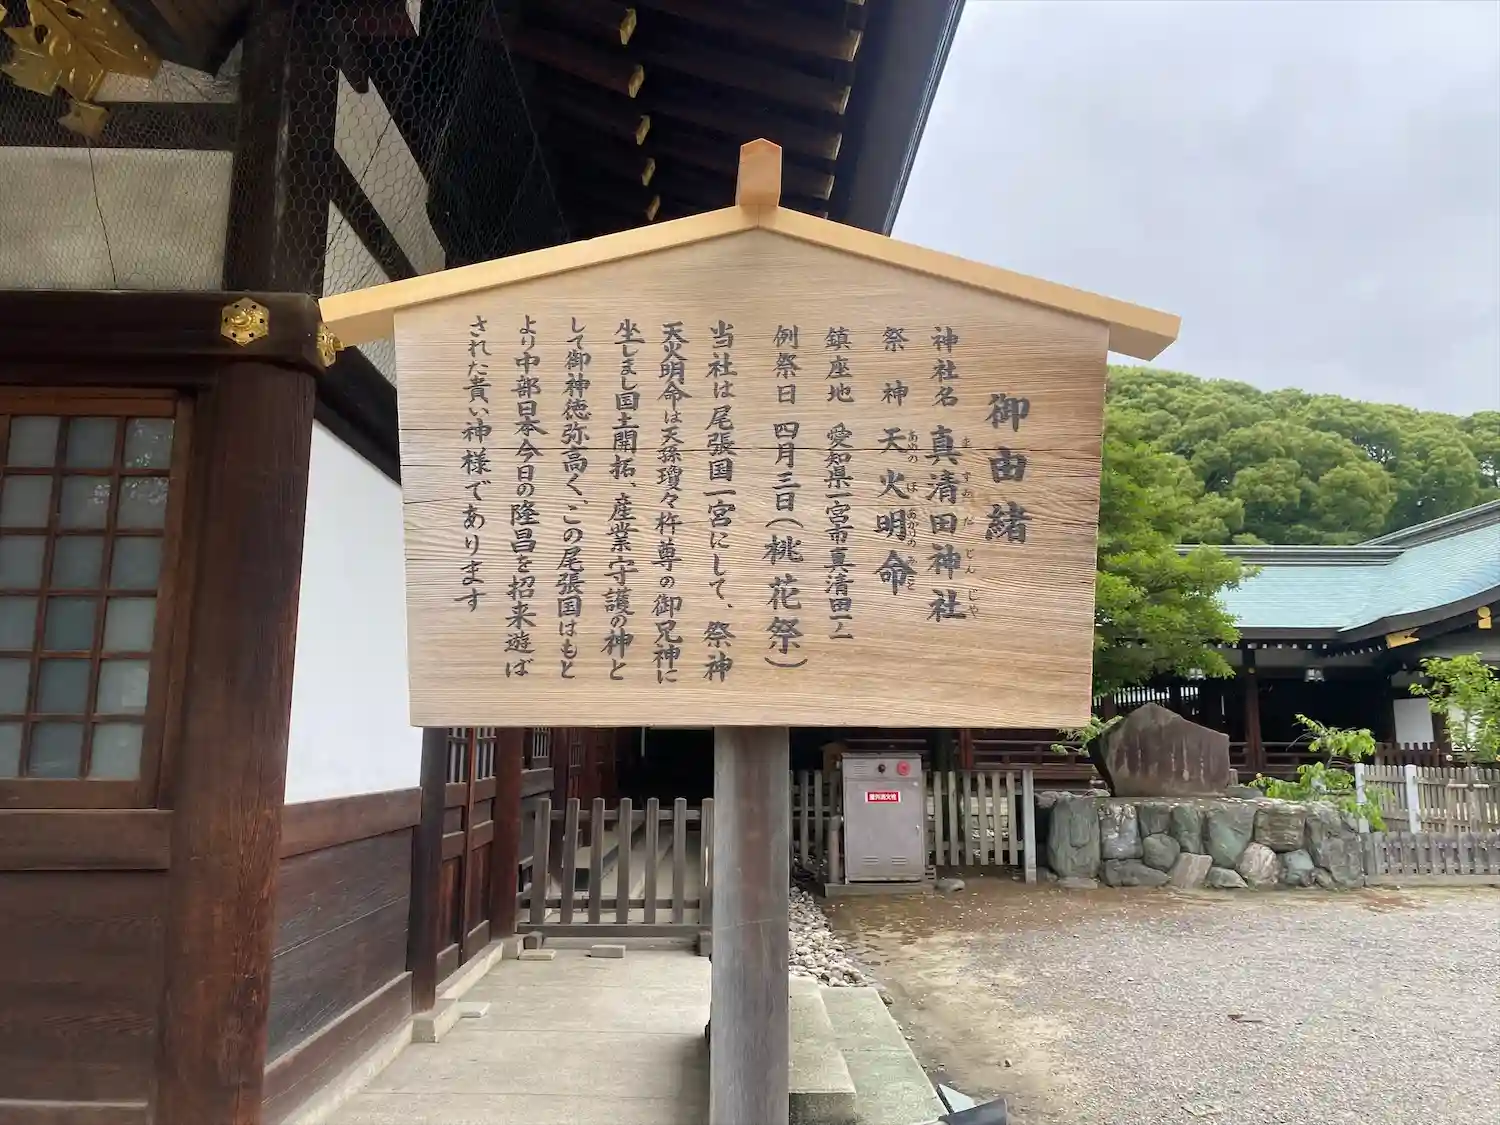 御由緒
神社名 真清田神社
ますみだじんじゃ
祭神 天火明命
あめのほあかりのみこと
鎮座地 愛知県一宮市真清田一ノ一
例祭日 四月三日(桃花祭)
当社は尾張国一宮にして、祭神
天火明命は天孫瓊々杵尊の御兄神に
坐しまし国土開拓、産業守護の神と
して御神徳弥高く、この尾張国はもと
より中部日本今日の隆昌を招来遊ば
された貴い神様であります
屋外消火栓